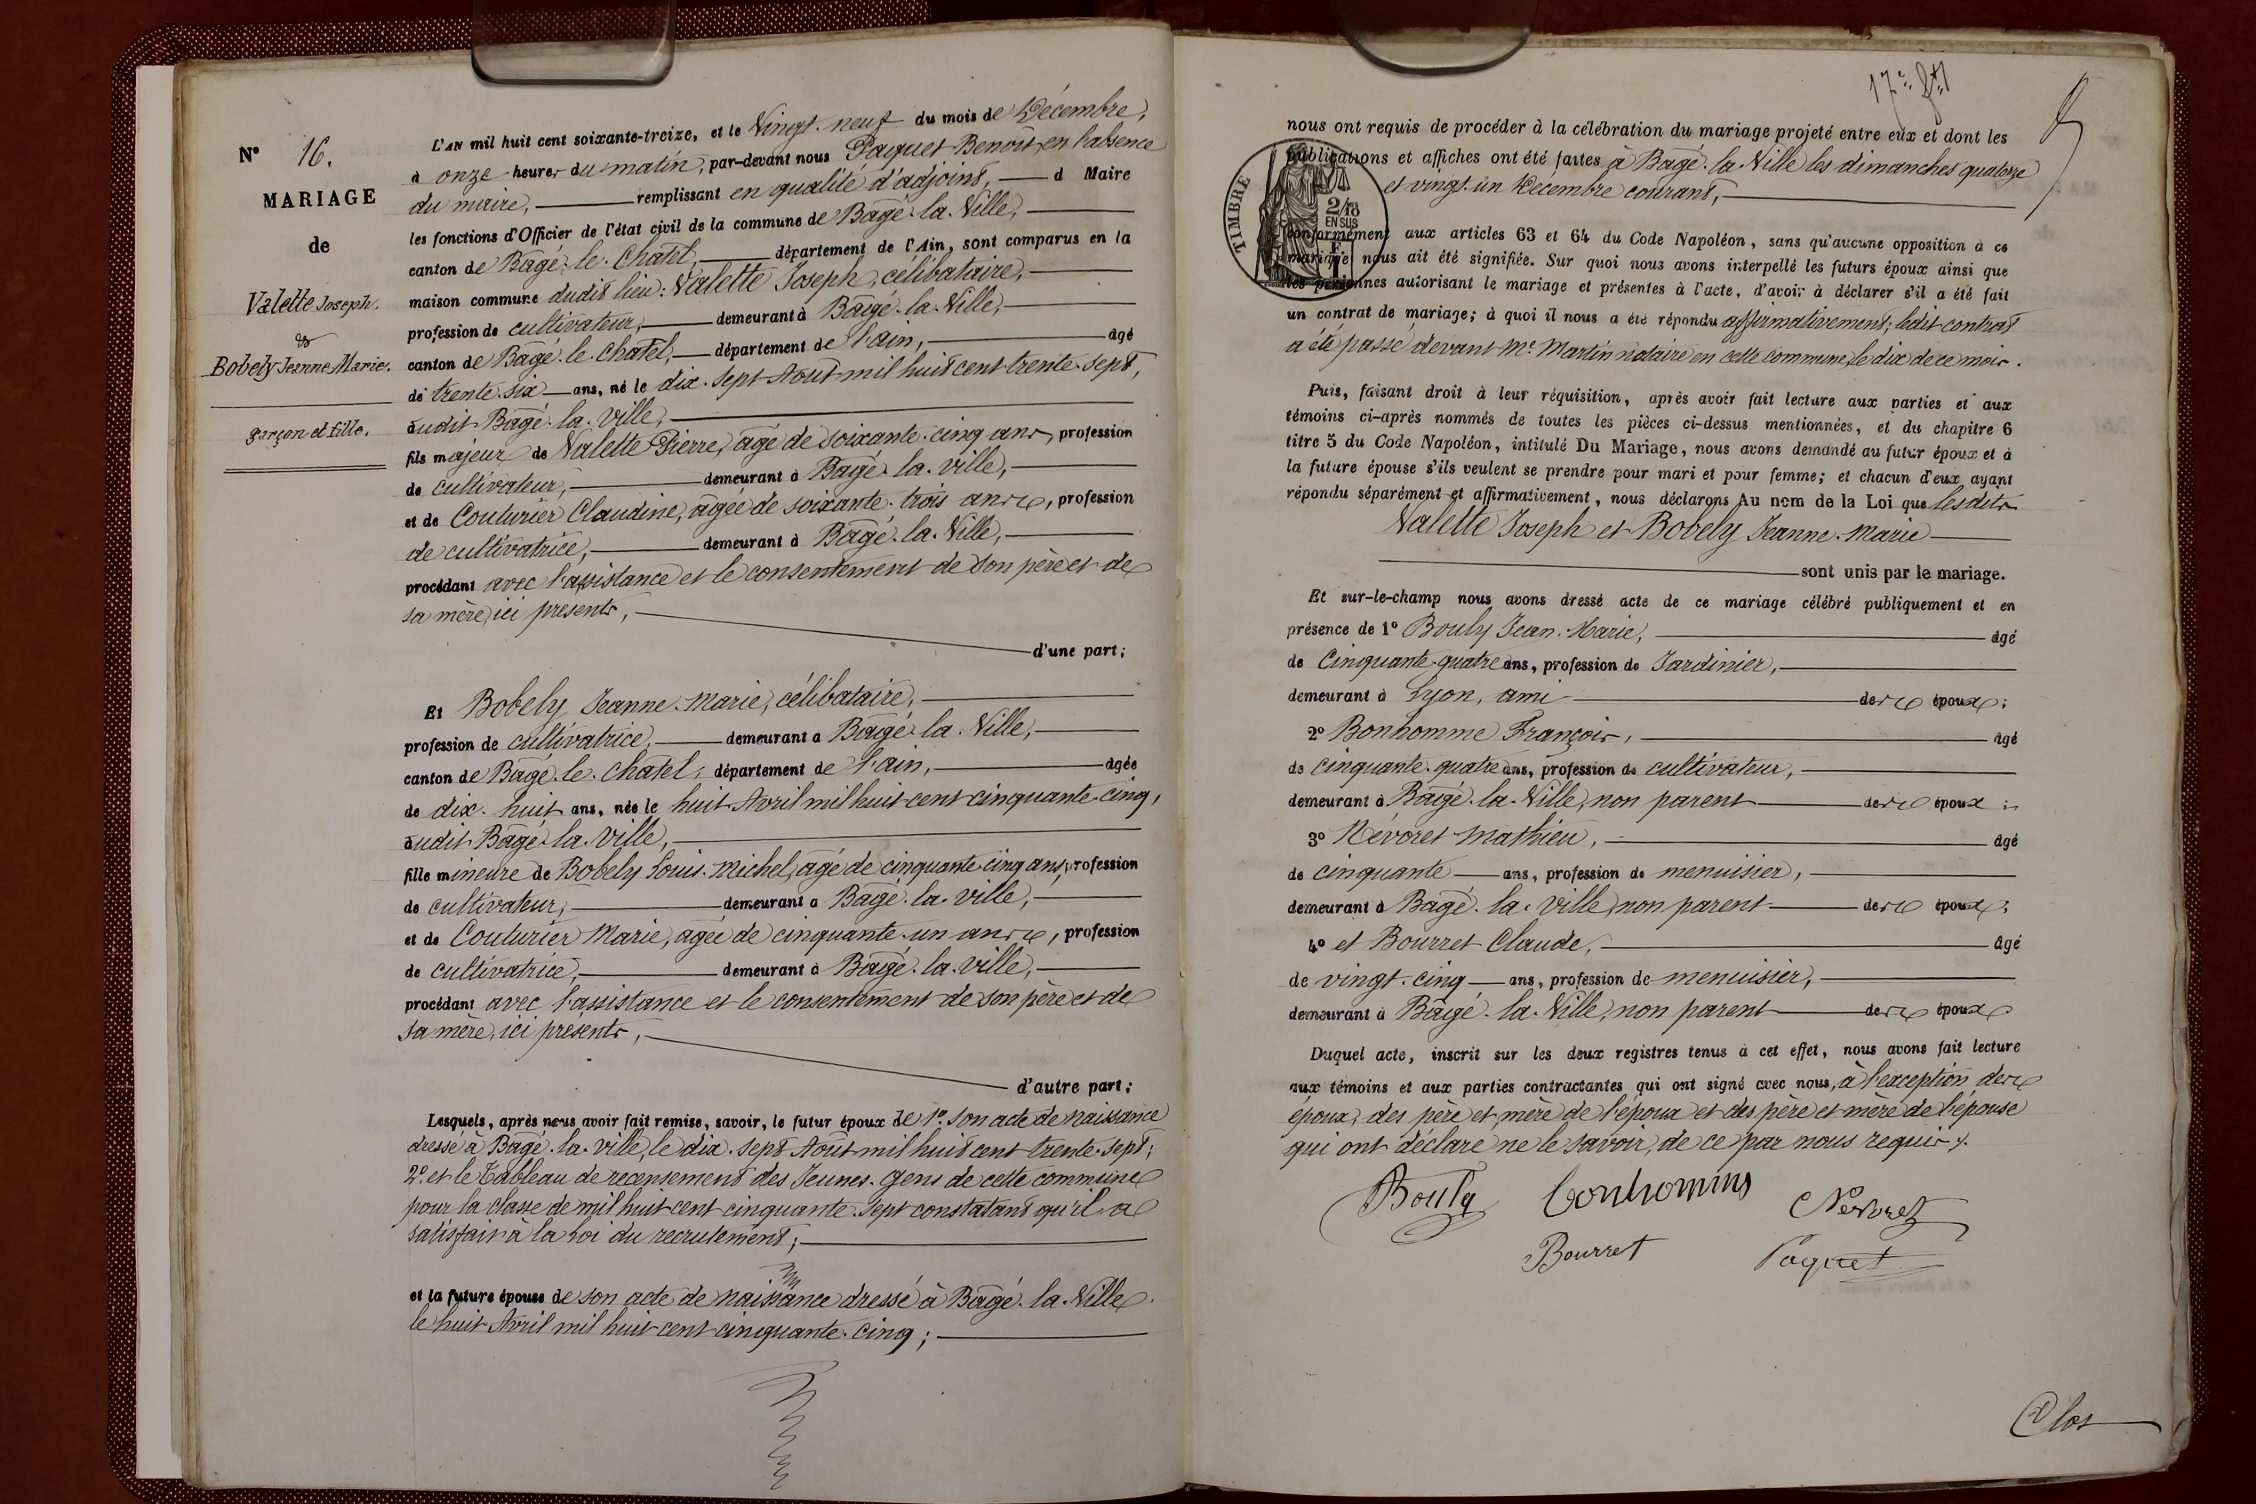 N° 16.
MARIAGE
de
Valette Joseph.
&
Bobely Jeanne Marie.
garçon et fille.
L'AN mil huit cent soixante-treize, et le Vingt-neuf du mois de Décembre,
à onze heures du matin, par-devant nous Paquet Benoît en l'absence
du maire, remplissant en qualité d'adjoint, d Maire
les fonctions d'Officier de l'état civil de la commune de Bâgé-la-Ville,
canton de Bâgé-le-Chatel, département de l'Ain, sont comparus en la
maison commune dudit lieu: Valette Joseph, célibataire,
profession de cultivateur, demeurant à Bâgé-la-Ville,
canton de Bâgé-le-Chatel, département de l'ain, âgé
de trente-six ans, né le dix-sept Août mil huit cent trente-sept,
audit Bâgé-la-Ville,
fils majeur de Valette Pierre, âgé de soixante-cinq ans, profession
de cultivateur, demeurant à Bâgé-la-Ville,
et de Couturier Claudine, âgée de soixante-trois ans, profession
de cultivatrice, demeurant à Bâgé-la-Ville,
procédant avec l'assistance et le consentement de son père et de
sa mère, ici présents,
d'une part;
Et Bobely Jeanne-Marie, célibataire,
profession de cultivatrice, demeurant à Bâgé-la-Ville,
canton de Bâgé-le-Chatel, département de l'ain, âgée
de dix-huit ans, née le huit Avril mil huit cent cinquante-cinq,
audit Bâgé-la-Ville,
fille mineure de Bobely Louis-Michel, âgé de cinquante-cinq ans, profession
de cultivateur, demeurant à Bâgé-la-Ville,
et de Couturier Marie, âgée de cinquante-un ans, profession
de cultivatrice, demeurant à Bâgé-la-Ville,
procédant avec l'assistance et le consentement de son père et de
sa mère, ici présents,
d'autre part;
Lesquels, après nous avoir fait remise, savoir, le futur époux de 1° son acte de naissance
dressé à Bâgé-la-Ville, le dix-sept Août mil huit cent trente-sept;
2° et le Tableau de recensement des Jeunes-Gens de cette commune
pour la classe de mil huit cent cinquante-sept constatant qu'il a
satisfait à la Loi du recrutement;
et la future épouse de son acte de naissance dressé à Bâgé-la-Ville
le huit Avril mil huit cent cinquante-cinq;
nous ont requis de procéder à la célébration du mariage projeté entre eux et dont les
publications et affiches ont été faites à Bâgé-la-Ville les dimanches quatorze
et vingt-un Décembre courant,
TIMBRE
2/10
EN SUS
conformément aux articles 63 et 64 du Code Napoléon, sans qu'aucune opposition à ce
mariage nous ait été signifiée. Sur quoi nous avons interpellé les futurs époux ainsi que
les personnes autorisant le mariage et présentes à l'acte, d'avoir à déclarer s'il a été fait
un contrat de mariage; à quoi il nous a été répondu affirmativement, ledit contrat
a été passé devant Me Martin notaire en cette commune, le dix de ce mois.
Puis, faisant droit à leur réquisition, après avoir fait lecture aux parties et aux
témoins ci-après nommés de toutes les pièces ci-dessus mentionnées, et du chapitre 6
titre 5 du Code Napoléon, intitulé Du Mariage, nous avons demandé au futur époux et à
la future épouse s'ils veulent se prendre pour mari et pour femme; et chacun d'eux ayant
répondu séparément et affirmativement, nous déclarons Au nom de la Loi que lesdits
Valette Joseph et Bobely Jeanne-Marie
sont unis par le mariage.
Et sur-le-champ nous avons dressé acte de ce mariage célébré publiquement et en
présence de 1° Bouly Jean-Marie, âgé
de Cinquante-quatre ans, profession de Jardinier,
demeurant à Lyon, ami des époux;
2° Bonhomme François, âgé
de cinquante-quatre ans, profession de cultivateur,
demeurant à Bâgé-la-Ville, non parent des époux;
3° Névoret Mathieu, âgé
de cinquante ans, profession de menuisier,
demeurant à Bâgé-la-Ville, non parent des époux;
4° et Bourret Claude, âgé
de vingt-cinq ans, profession de menuisier,
demeurant à Bâgé-la-Ville, non parent des époux
Duquel acte, inscrit sur les deux registres tenus à cet effet, nous avons fait lecture
aux témoins et aux parties contractantes qui ont signé avec nous, à l'exception des
époux, des père et mère de l'époux et des père et mère de l'épouse
qui ont déclaré ne le savoir, de ce par nous requis.
Bouly Bonhomme Nevoret
Bourret Paquet
Clos